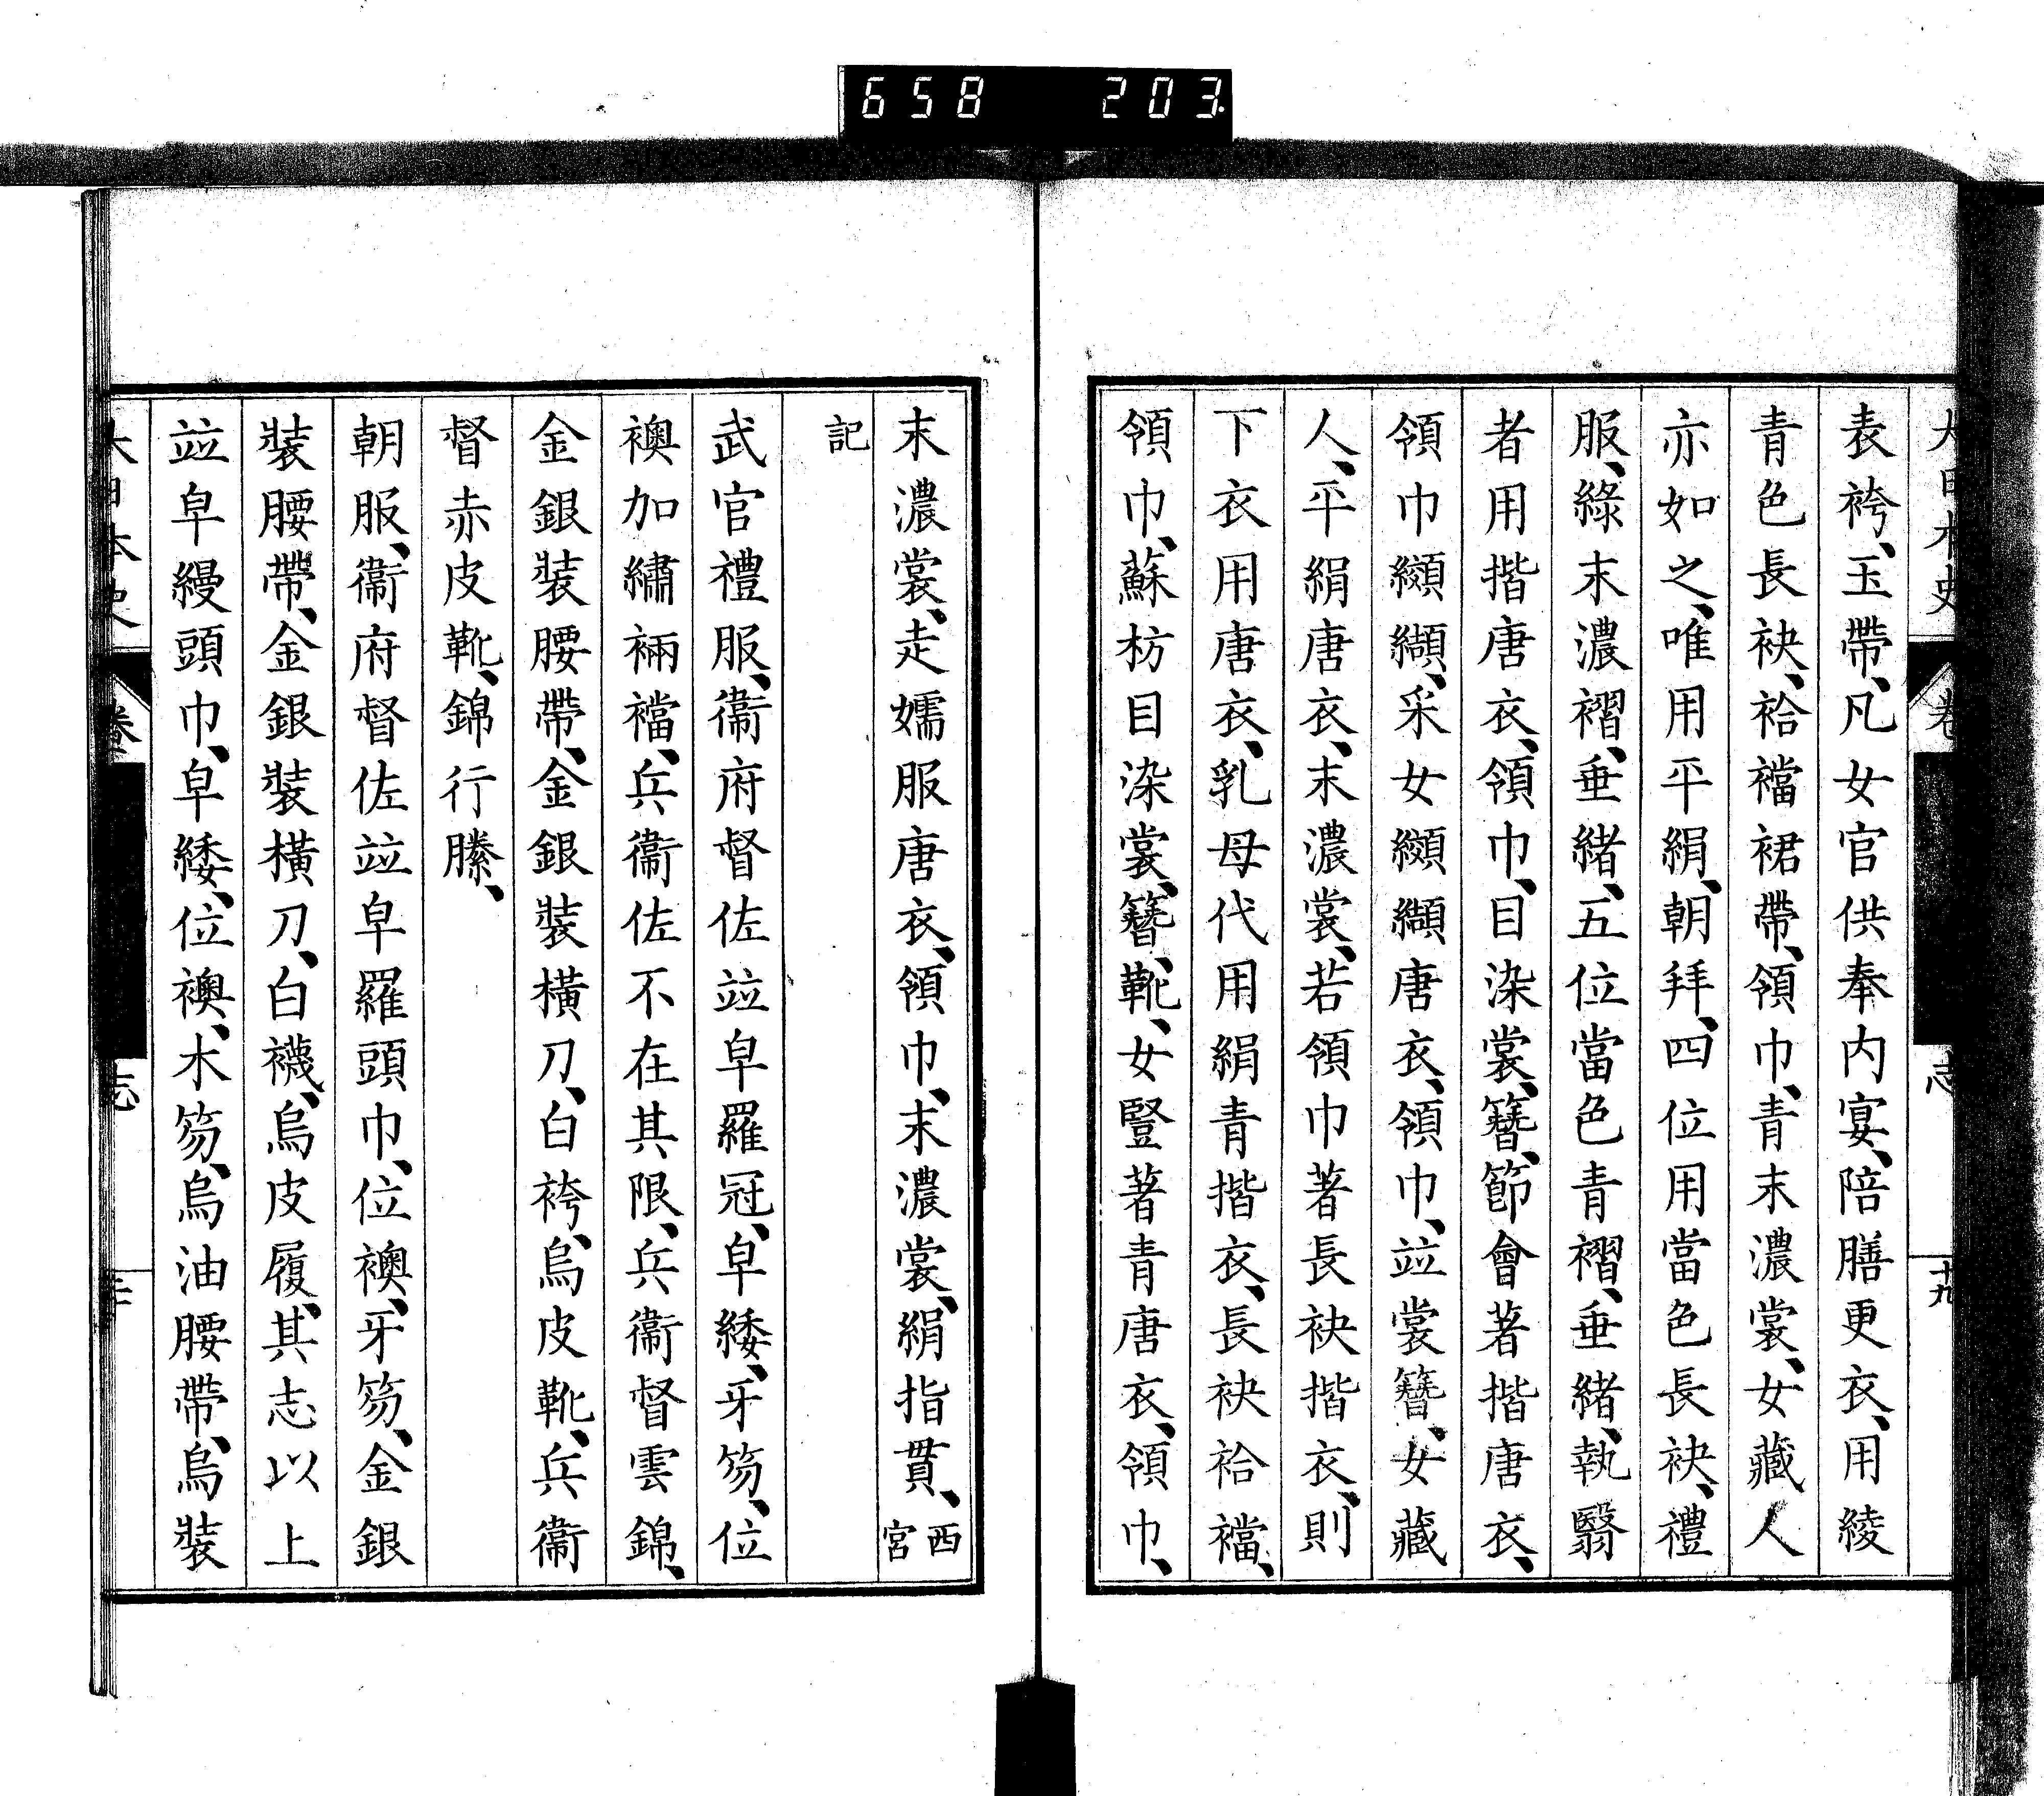 658 203
大日本史 卷 志 十九
表袴、玉帶、凡女官供奉内宴、陪膳更衣、用綾
青色長袂、袷襠裙帶、領巾、青末濃裳、女藏人
亦如之、唯用平絹、朝拜、四位用當色長袂、禮
服、綠末濃褶、垂緒、五位當色青褶、垂緒、執翳
者用揩唐衣、領巾、目染裳、簪、節會著揩唐衣、
領巾纐纈、采女纐纈唐衣、領巾、竝裳簪、女藏
人、平絹唐衣、末濃裳、若領巾著長袂揩衣、則
下衣用唐衣、乳母代用絹青揩衣、長袂袷襠、
領巾、蘇枋目染裳、簪、靴、女豎著青唐衣、領巾、
末濃裳、走孺服唐衣、領巾、末濃裳、絹指貫、西宮
記
武官禮服、衞府督佐竝皁羅冠、皁緌、牙笏、位
襖加繡裲襠、兵衞佐不在其限、兵衞督雲錦、
金銀裝腰帶、金銀裝橫刀、白袴、烏皮靴、兵衞
督赤皮靴、錦行縢、
朝服、衞府督佐竝皁羅頭巾、位襖、牙笏、金銀
裝腰帶、金銀裝橫刀、白襪、烏皮履、其志以上
竝皁縵頭巾、皁緌、位襖、木笏、烏油腰帶、烏裝
大日本史 卷 志